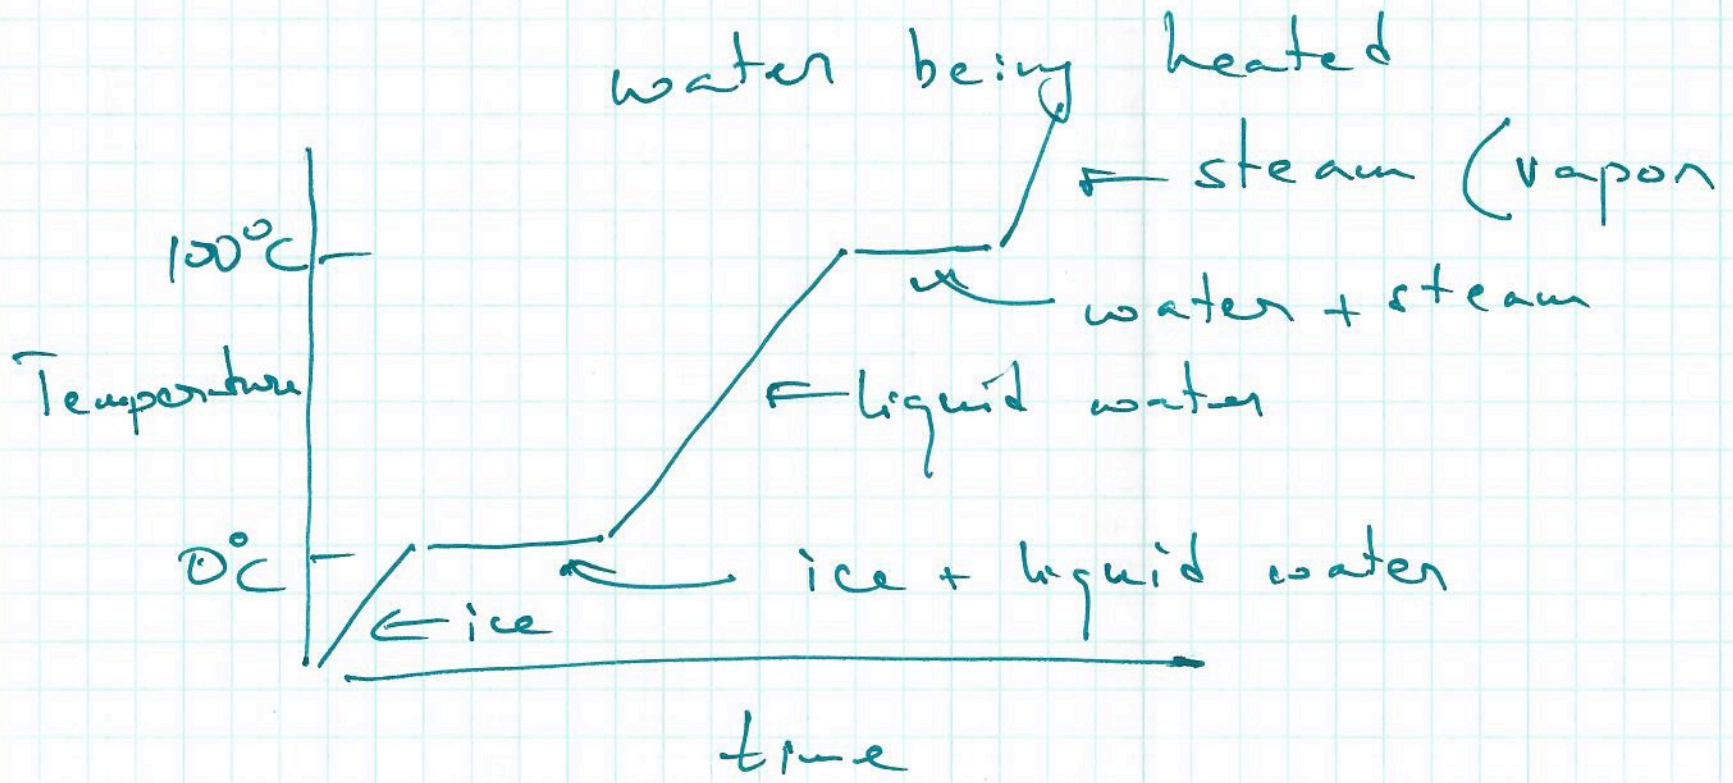 water being heated
← steam (vapor
100°C
← water + steam
Temperature
← liquid water
0°C
← ice + liquid water
← ice
time